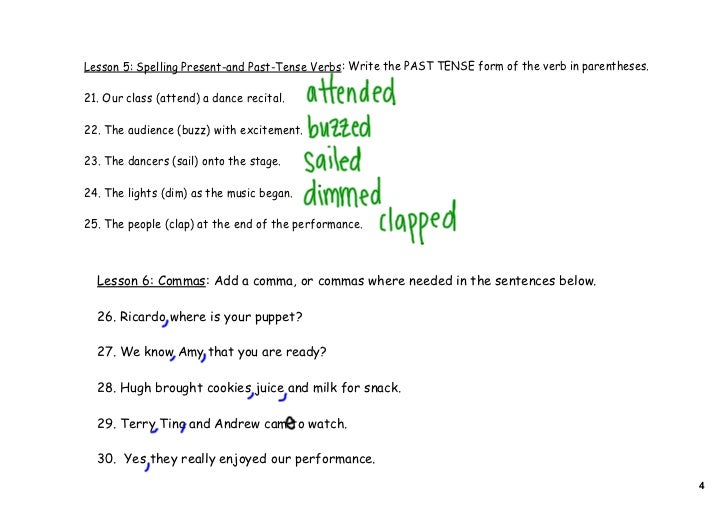 Lesson 5: Spelling Present-and Past-Tense Verbs: Write the PAST TENSE form of the verb in parentheses.
21. Our class (attend) a dance recital. attended
22. The audience (buzz) with excitement. buzzed
23. The dancers (sail) onto the stage. sailed
24. The lights (dim) as the music began. dimmed
25. The people (clap) at the end of the performance. clapped
Lesson 6: Commas: Add a comma, or commas where needed in the sentences below.
26. Ricardo, where is your puppet?
27. We know, Amy, that you are ready?
28. Hugh brought cookies, juice, and milk for snack.
29. Terry, Tina, and Andrew came to watch.
30. Yes, they really enjoyed our performance.
4